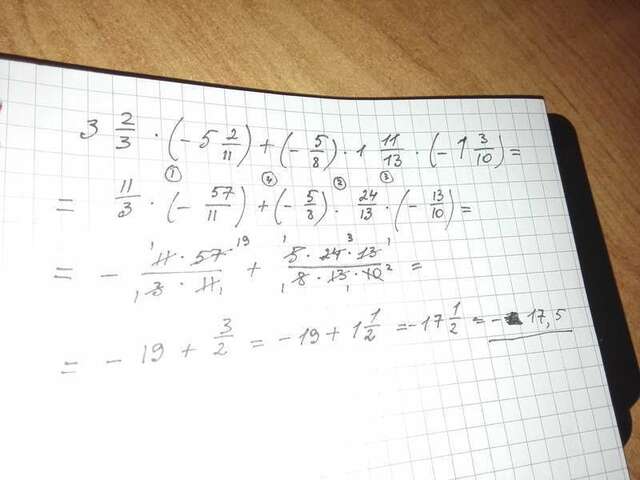 3 2/3 · (− 5 2/11) + (− 5/8) · 1 11/13 · (− 1 3/10) =
① ④ ② ③
= 11/3 · (− 57/11) + (− 5/8) · 24/13 · (− 13/10) =
= − 11 · 57 / 3 · 11 + 5 · 24 · 13 / 8 · 13 · 10 =
= − 19 + 3/2 = − 19 + 1 1/2 = − 17 1/2 = − 17,5